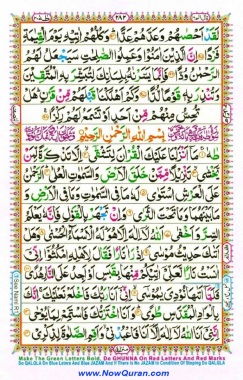 قال الم ١٦
٢٨٢
لَقَدْ اَحْصٰىهُمْ وَعَدَّهُمْ عَدًّا وَكُلُّهُمْ اٰتِيْهِ يَوْمَ الْقِيٰمَةِ
فَرْدًا اِنَّ الَّذِيْنَ اٰمَنُوْا وَعَمِلُوا الصّٰلِحٰتِ سَيَجْعَلُ لَهُمُ
الرَّحْمٰنُ وُدًّا فَاِنَّمَا يَسَّرْنٰهُ بِلِسَانِكَ لِتُبَشِّرَ بِهِ الْمُتَّقِيْنَ
وَتُنْذِرَ بِهٖ قَوْمًا لُّدًّا وَكَمْ اَهْلَكْنَا قَبْلَهُمْ مِّنْ قَرْنٍ هَلْ
تُحِسُّ مِنْهُمْ مِّنْ اَحَدٍ اَوْ تَسْمَعُ لَهُمْ رِكْزًا
بِسْمِ اللّٰهِ الرَّحْمٰنِ الرَّحِيْمِ
طٰهٰ مَآ اَنْزَلْنَا عَلَيْكَ الْقُرْاٰنَ لِتَشْقٰٓى اِلَّا تَذْكِرَةً لِّمَنْ
يَّخْشٰى تَنْزِيْلًا مِّمَّنْ خَلَقَ الْاَرْضَ وَالسَّمٰوٰتِ الْعُلٰى اَلرَّحْمٰنُ
عَلَى الْعَرْشِ اسْتَوٰى لَهٗ مَا فِى السَّمٰوٰتِ وَمَا فِى الْاَرْضِ وَمَا
بَيْنَهُمَا وَمَا تَحْتَ الثَّرٰى وَاِنْ تَجْهَرْ بِالْقَوْلِ فَاِنَّهٗ يَعْلَمُ
السِّرَّ وَاَخْفٰى اَللّٰهُ لَآ اِلٰهَ اِلَّا هُوَ لَهُ الْاَسْمَآءُ الْحُسْنٰى وَهَلْ
اَتٰىكَ حَدِيْثُ مُوْسٰى اِذْ رَاٰ نَارًا فَقَالَ لِاَهْلِهِ امْكُثُوْٓا اِنِّىْٓ
اٰنَسْتُ نَارًا لَّعَلِّىْٓ اٰتِيْكُمْ مِّنْهَا بِقَبَسٍ اَوْ اَجِدُ عَلَى النَّارِ هُدًى
فَلَمَّآ اَتٰىهَا نُوْدِىَ يٰمُوْسٰى اِنِّىْٓ اَنَا رَبُّكَ فَاخْلَعْ نَعْلَيْكَ اِنَّكَ
بِالْوَادِ الْمُقَدَّسِ طُوًى وَاَنَا اخْتَرْتُكَ فَاسْتَمِعْ لِمَا يُوْحٰى
Make The Green Letters Bold, Do GHUNNA On Red Letters And Red Marks
Do QALQLA On Blue Letters And Blue JAZAM And If There Is No JAZAM In Condition Of Stoping Do QALQLA
www.NowQuran.com